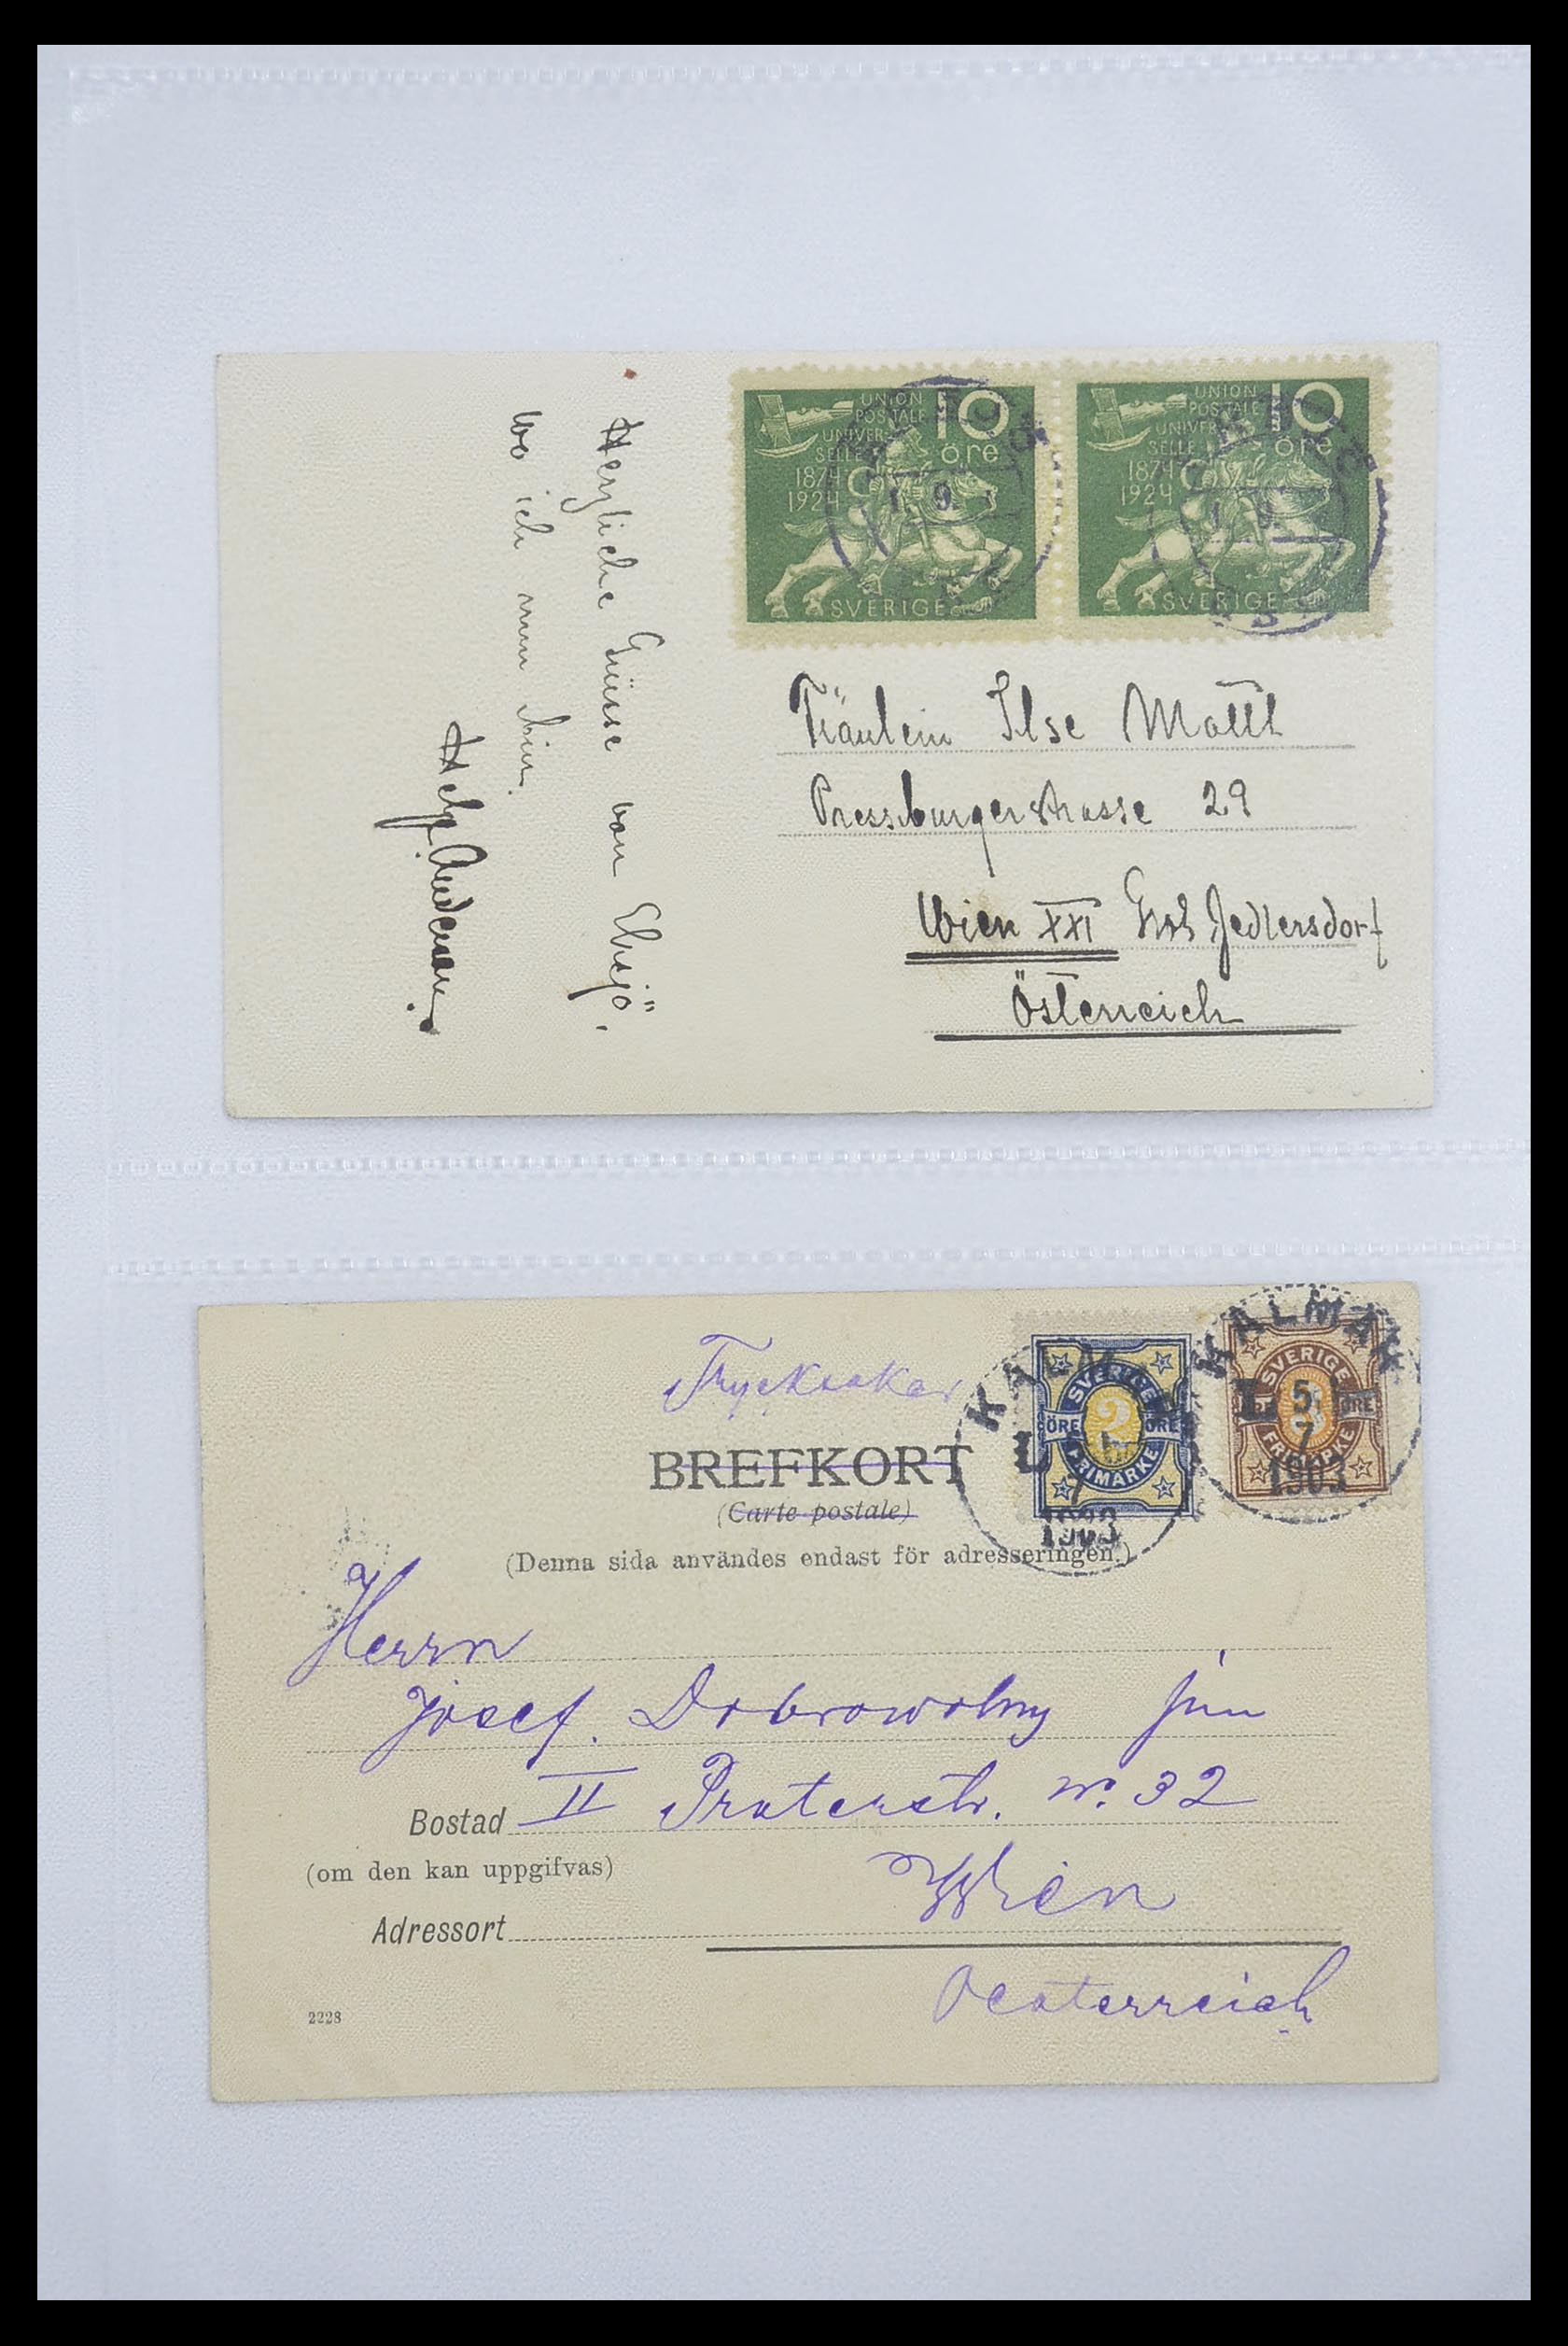 UNION
POSTALE
UNIVER
SELLE
1874
1924
10
öre
SVERIGE
UNION
POSTALE
UNIVER
SELLE
1874
1924
10
öre
SVERIGE
9.
Herzliche Grüsse von
wo ich nun bin.
Fräulein Ilse Mottl
Pressburgerstrasse 29
Wien XXI Groß Jedlersdorf
Österreich
Trycksaker
BREFKORT
(Carte postale)
(Denna sida användes endast för adresseringen.)
SVERIGE
2
ÖRE ÖRE
FRIMÄRKE
KALMAR
L
7
1903
SVERIGE
ÖRE
FRIMÄRKE
KALMAR
L 5,
7
1903
Herrn
Josef Dobrowolny jun
Bostad II Praterstr. No. 32
(om den kan uppgifvas)
Wien
Adressort
Oesterreich
2228